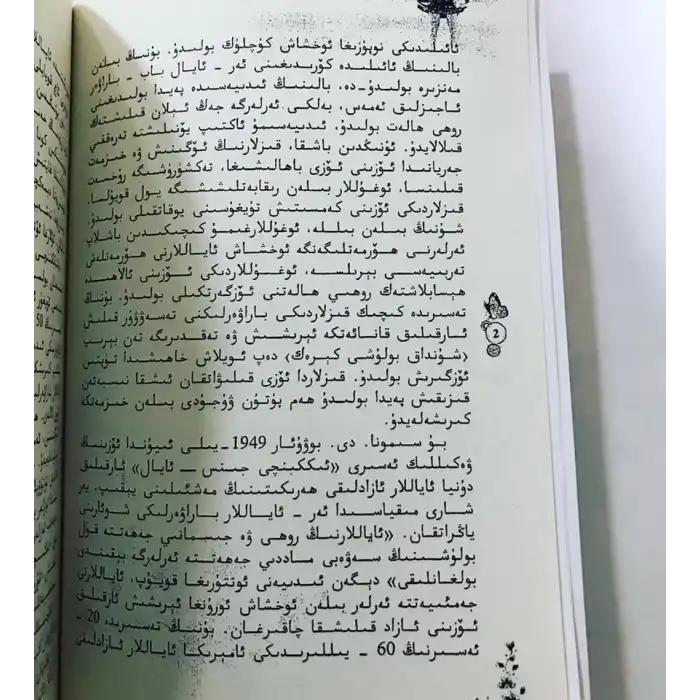 ئائىلىدىكى نوپۇزىغا ئوخشاش كۈچلۈك بولىدۇ. بۇنىڭ بىلەن
بالىنىڭ ئائىلىدە كۆرىدىغىنى ئەر - ئايال باپ - باراۋەر
مەنزىرە بولىدۇ-دە، بالىنىڭ ئىدىيەسىدە پەيدا بولىدىغىنى
ئاجىزلىق ئەمەس، بەلكى ئەرلەرگە جەڭ ئېلان قىلىشتەك
روھى ھالەت بولىدۇ، ئىدىيەسىمۇ ئاكتىپ يۆنىلىشتە تەرەققىي
قىلالايدۇ. ئۇنىڭدىن باشقا، قىزلارنىڭ ئۆگىنىش ۋە خىزمەت
جەريانىدا ئۆزىنى ئۆزى باھالىشىغا، تەكشۈرۈشىگە رۇخسەت
قىلىنسا، ئوغۇللار بىلەن رىقابەتلىشىشىگە يول قويۇلسا،
قىزلاردىكى ئۆزىنى كەمسىتىش تۇيغۇسىنى يوقاتقىلى بولىدۇ.
شۇنىڭ بىلەن بىللە، ئوغۇللارغىمۇ كىچىكىدىن باشلاپ
ئەرلەرنى ھۆرمەتلىگەنگە ئوخشاش ئاياللارنى ھۆرمەتلەش
تەربىيەسى بېرىلسە، ئوغۇللاردىكى ئۆزىنى ئالاھىدە
ھېسابلاشتەك روھىي ھالەتنى ئۆزگەرتكىلى بولىدۇ. بۇنىڭ
تەسىرىدە كىچىك قىزلاردىكى باراۋەرلىكنى تەسەۋۋۇر قىلىش
ئارقىلىق قانائەتكە ئېرىشىش ۋە تەقدىرىگە تەن بېرىپ
‹شۇنداق بولۇشى كېرەك› دەپ ئويلاش خاھىشىدا تۈپتىن
ئۆزگىرىش بولىدۇ. قىزلاردا ئۆزى قىلىۋاتقان ئىشقا نىسبەتەن
قىزىقىش پەيدا بولىدۇ ھەم پۈتۈن ۋۇجۇدى بىلەن خىزمەتكە
كىرىشەلەيدۇ.
بۇ سىمونا. دى. بوۋۇئار 1949-يىلى ئىيۇندا ئۆزىنىڭ
ۋەكىللىك ئەسىرى «ئىككىنچى جىنس — ئايال» ئارقىلىق
دۇنيا ئاياللار ئازادلىقى ھەرىكىتىنىڭ مەشئىلىنى يېقىپ، يەر
شارى مىقياسىدا ئەر - ئاياللار باراۋەرلىكى شوئارىنى
ياڭراتقان. «ئاياللارنىڭ روھى ۋە جىسمانىي جەھەتتە قۇل
بولۇشىنىڭ سەۋەبى ماددىي جەھەتتە ئەرلەرگە بېقىندى
بولغانلىقى» دېگەن ئىدىيەنى ئوتتۇرىغا قويۇپ، ئاياللارنى
جەمئىيەتتە ئەرلەر بىلەن ئوخشاش ئورۇنغا ئېرىشىش ئارقىلىق
ئۆزىنى ئازاد قىلىشقا چاقىرغان. بۇنىڭ تەسىرىدە 20 -
ئەسىرنىڭ 60 - يىللىرىدىكى ئامېرىكا ئاياللار ئازادلىقى
2